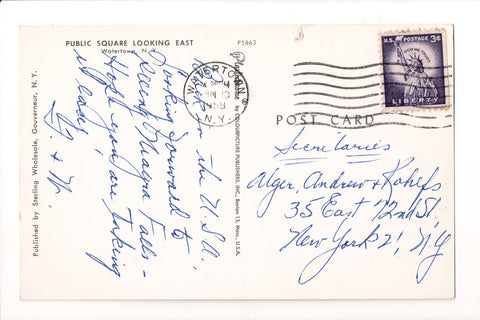 PUBLIC SQUARE LOOKING EAST
Watertown, N.Y.
P5863
Published by Sterling Wholesale, Gouverneur, N. Y.
COLOURPICTURE PUBLISHERS, INC., Boston 15, Mass., U.S.A.
in the U.S.A.
looking forward to
seeing Niagra Falls -
Hope you are taking
it easy.
WATERTOWN
N.Y.
U.S. POSTAGE 3¢
IN GOD WE TRUST
LIBERTY
POST CARD
Secretaries
Alger, Andrew & Rohlfs
35 East 72nd St.
New York 21, N.Y